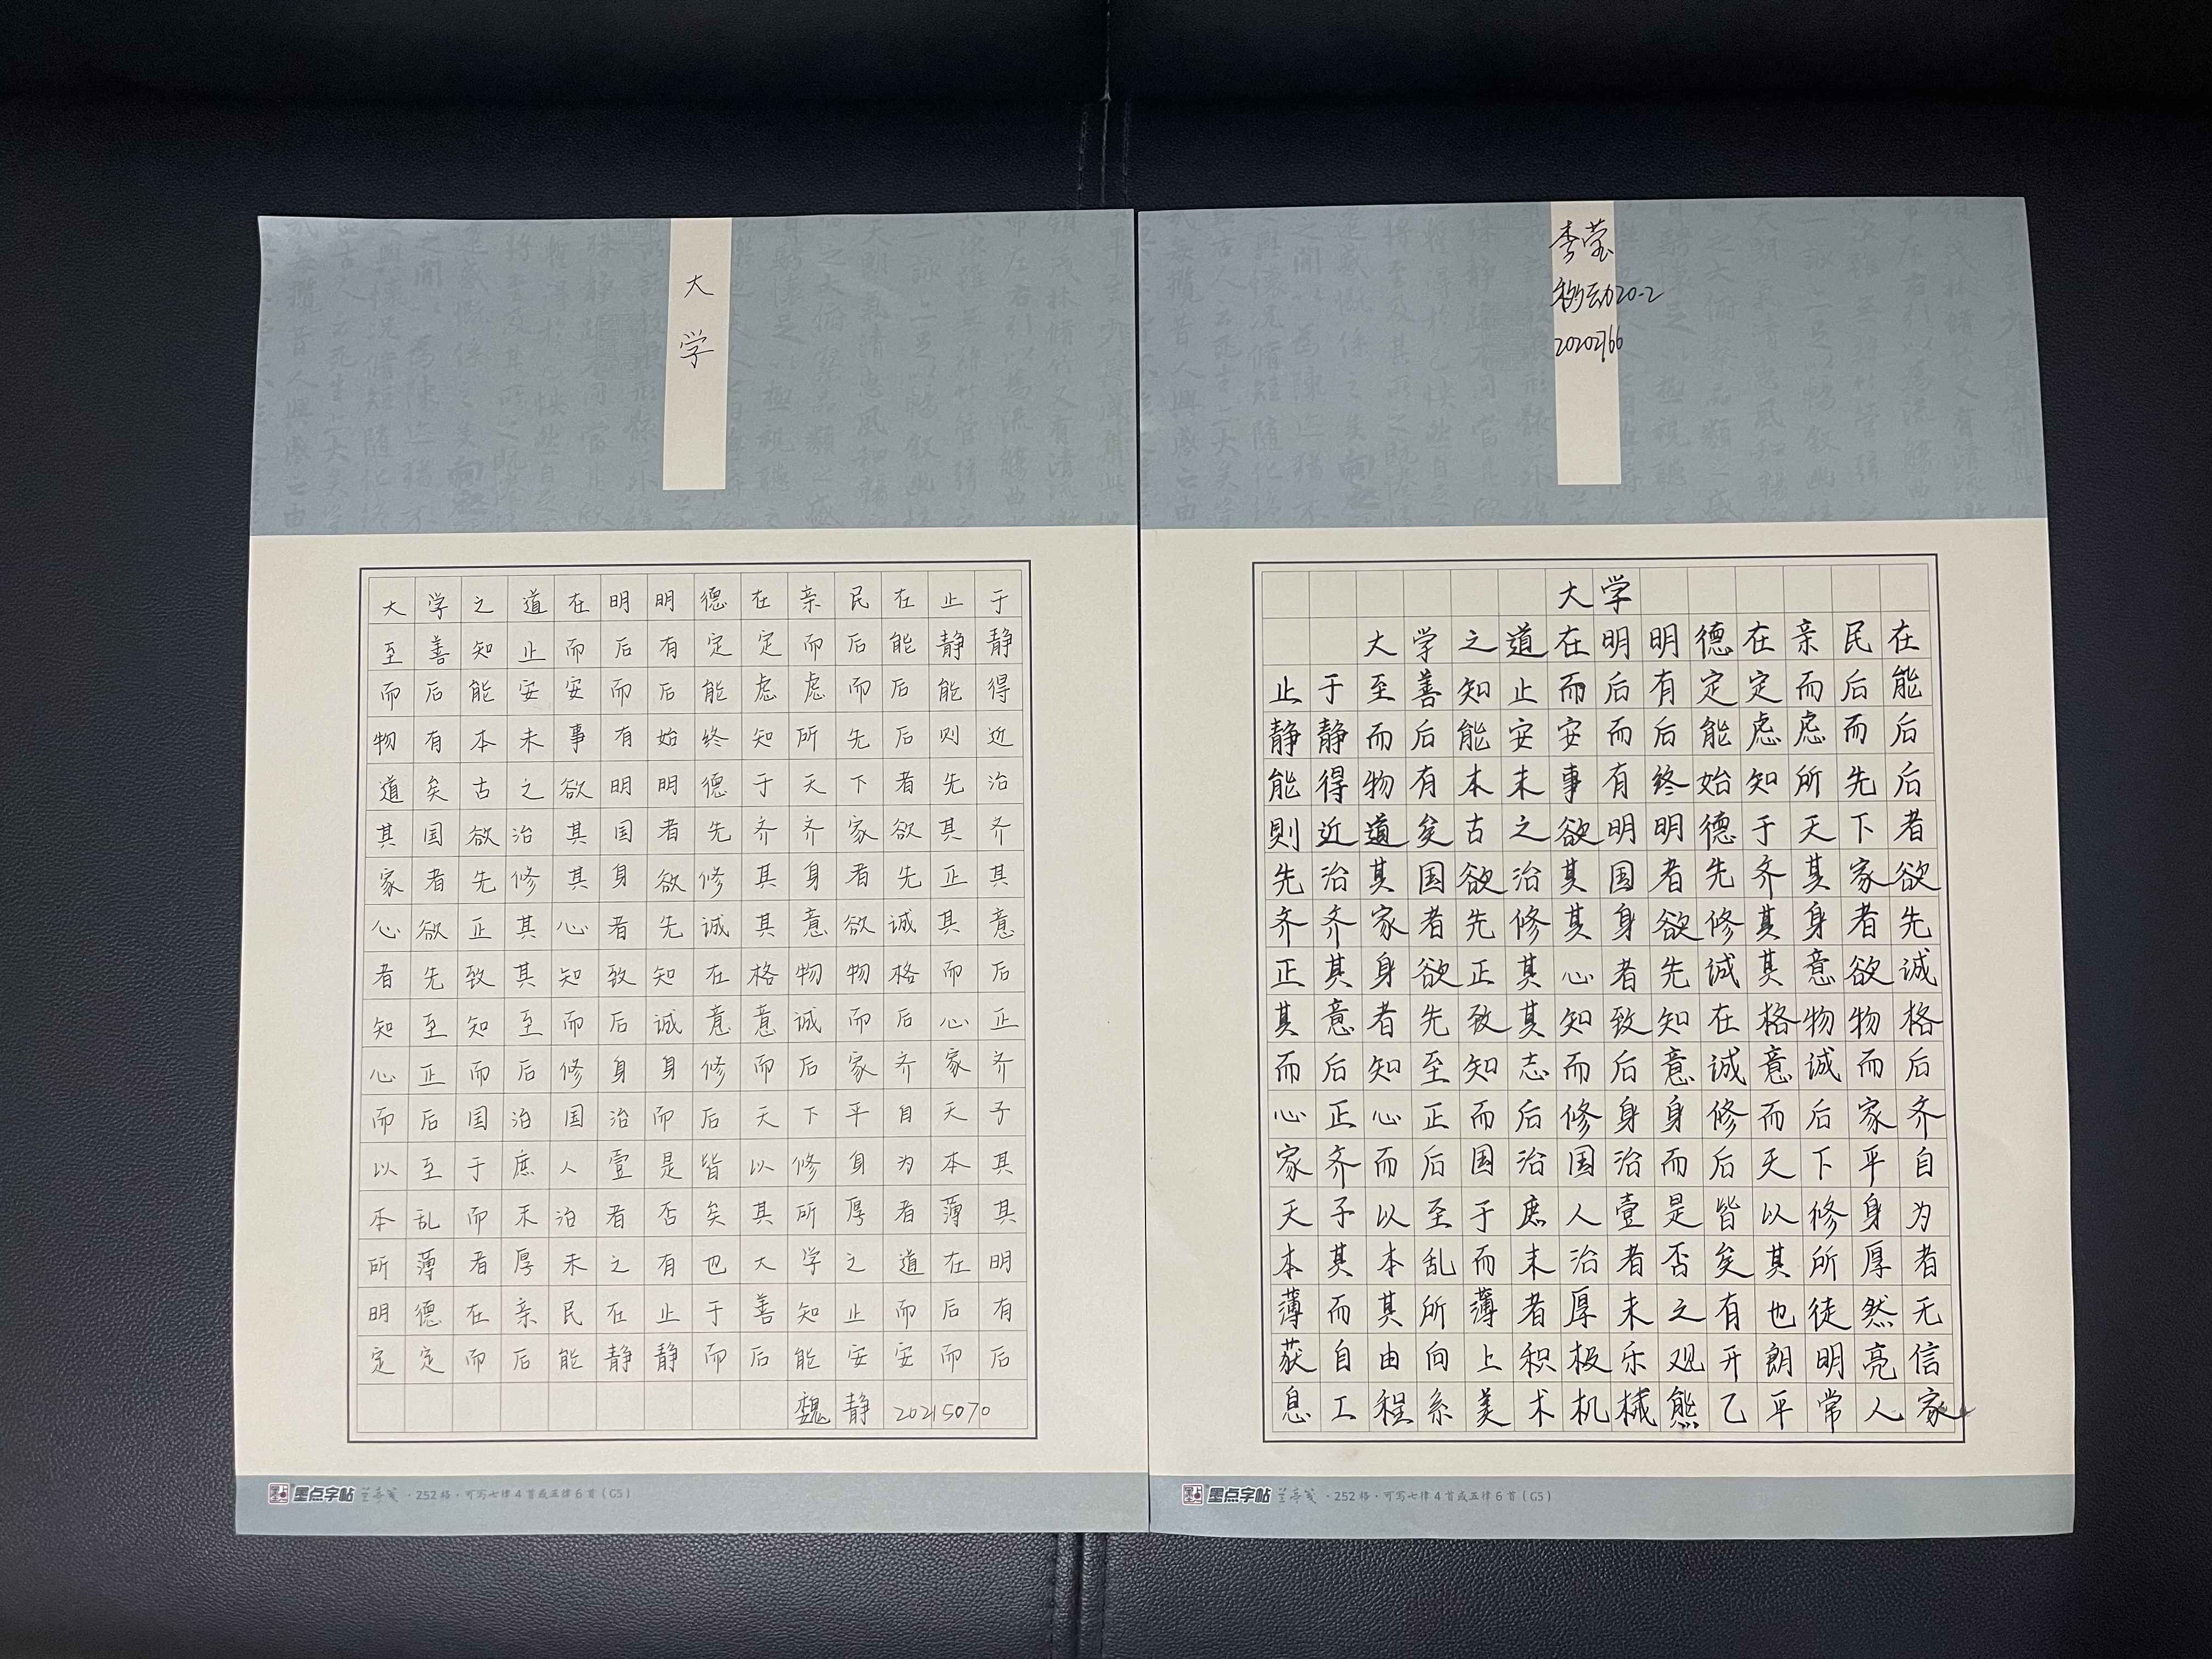 大
学
大学之道在明明德在亲民在止于
至善知止而后有定定而后能静静
而后能安安而后能虑虑而后能得
物有本末事有始终知所先后则近
道矣古之欲明明德于天下者先治
其国欲治其国者先齐齐家欲其齐
家者先修其身欲修其身者先正其
心欲正其心者先诚其意欲诚其意
者先致其知致知在格物物格而后
知至知至而后诚意意诚而后心正
心正而后修身身修而后家齐家齐
而后国治国治而后天下平自天子
以至于庶人壹是皆以修身为本其
本乱而末治者否矣其所厚者薄其
所薄者厚未之有也大学之道在明
明德在亲民在止于善知止而后有
定定而后能静静而后能安安而后
魏静 20215070
墨点字帖 兰亭笺·252格·可写七律4首或五律6首(G5)
李莹
移动20-2
大学
大学之道在明明德在亲民在
止于至善知止而后有定定而后能
静静而后能安安而后能虑虑而后
能得物有本末事有终始知所先后
则近道矣古之欲明明德于天下者
先治其国欲治其国者先齐其家欲
齐齐家者先修其身欲修其身者先
正其身欲正其心者先诚其意欲诚
其意者先致其知致知在格物物格
而后知至知志而后意诚意诚而后
心正心正而后修身身修而后家齐
家齐而后国治国治而后天下平自
天子以至于庶人壹是皆以修身为
本其本乱而末治者否矣其所厚者
薄而其所薄者厚未之有也徒然无
获自由向上积极乐观开朗明亮信
息工程系美术机械熊乙平常人家
墨点字帖 兰亭笺·252格·可写七律4首或五律6首(G5)